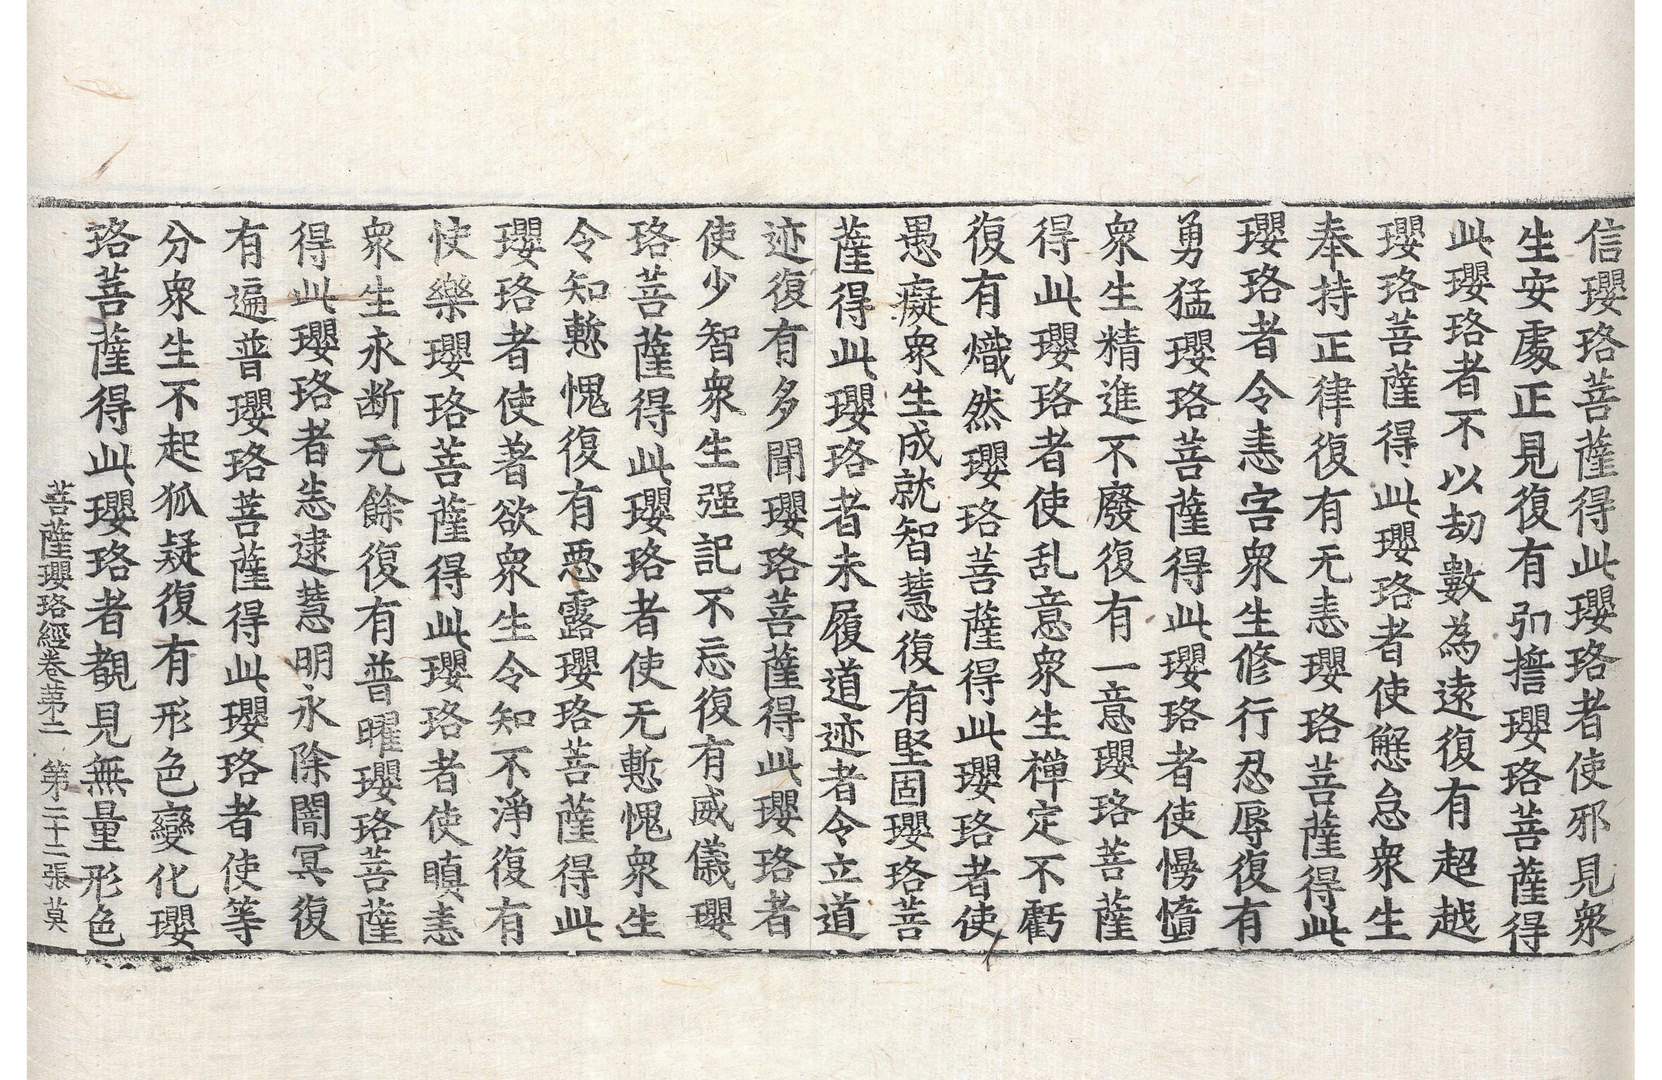 信瓔珞菩薩得此瓔珞者使邪見衆
生安處正見復有弘誓瓔珞菩薩得
此瓔珞者不以劫數為遠復有超越
瓔珞菩薩得此瓔珞者使懈怠衆生
奉持正律復有无恚瓔珞菩薩得此
瓔珞者令恚害衆生修行忍辱復有
勇猛瓔珞菩薩得此瓔珞者使慢憧
衆生精進不廢復有一意瓔珞菩薩
得此瓔珞者使乱意衆生禪定不虧
復有熾然瓔珞菩薩得此瓔珞者使
愚癡衆生成就智慧復有堅固瓔珞菩
薩得此瓔珞者未履道迹者令立道
迹復有多聞瓔珞菩薩得此瓔珞者
使少智衆生强記不忘復有威儀瓔
珞菩薩得此瓔珞者使无慙愧衆生
令知慙愧復有惡露瓔珞菩薩得此
瓔珞者使著欲衆生令知不淨復有
快樂瓔珞菩薩得此瓔珞者使瞋恚
衆生永断无餘復有普曜瓔珞菩薩
得此瓔珞者恚逮慧明永除闇冥復
有遍普瓔珞菩薩得此瓔珞者使等
分衆生不起狐疑復有形色變化瓔
珞菩薩得此瓔珞者覩見無量形色
菩薩瓔珞經卷第二 第二十二張 莫